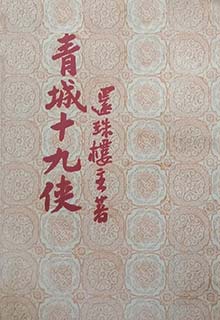 青城十九侠
還珠樓主著